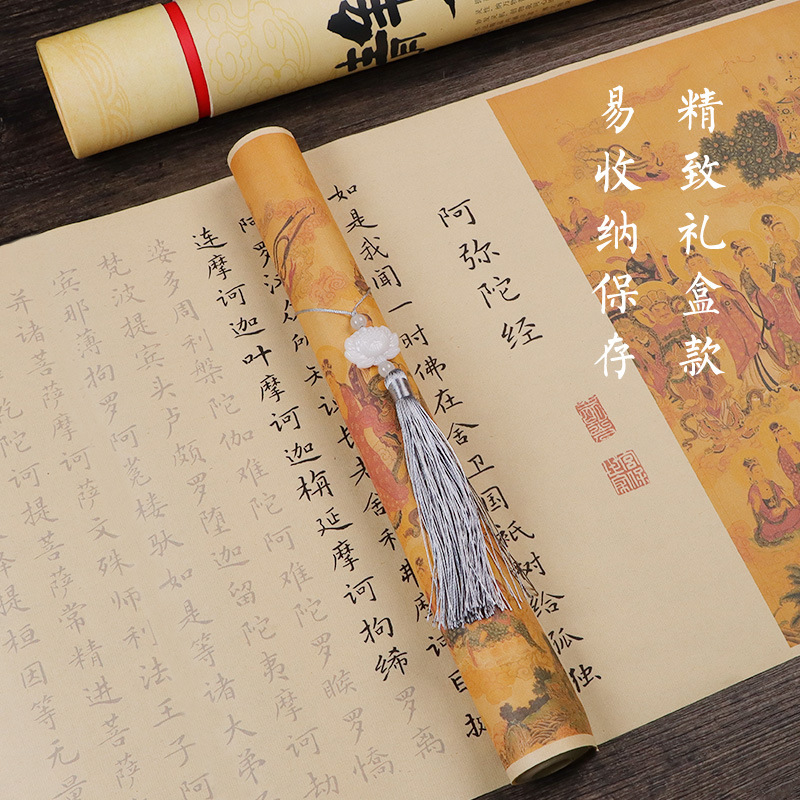 精致礼盒款
易收纳保存
阿弥陀经
如是我闻一时佛在舍卫国祇树给孤独
阿罗汉众所知识长老舍利弗摩诃目
连摩诃迦叶摩诃迦栴延摩诃拘絺罗离
婆多周利槃陀伽难陀阿难陀罗睺罗憍
梵波提宾头卢颇罗堕迦留陀夷摩诃劫
宾那薄拘罗阿菟楼驮如是等诸大弟
并诸菩萨摩诃萨文殊师利法王子阿
乾陀诃提菩萨常精进菩萨
提桓因等无量